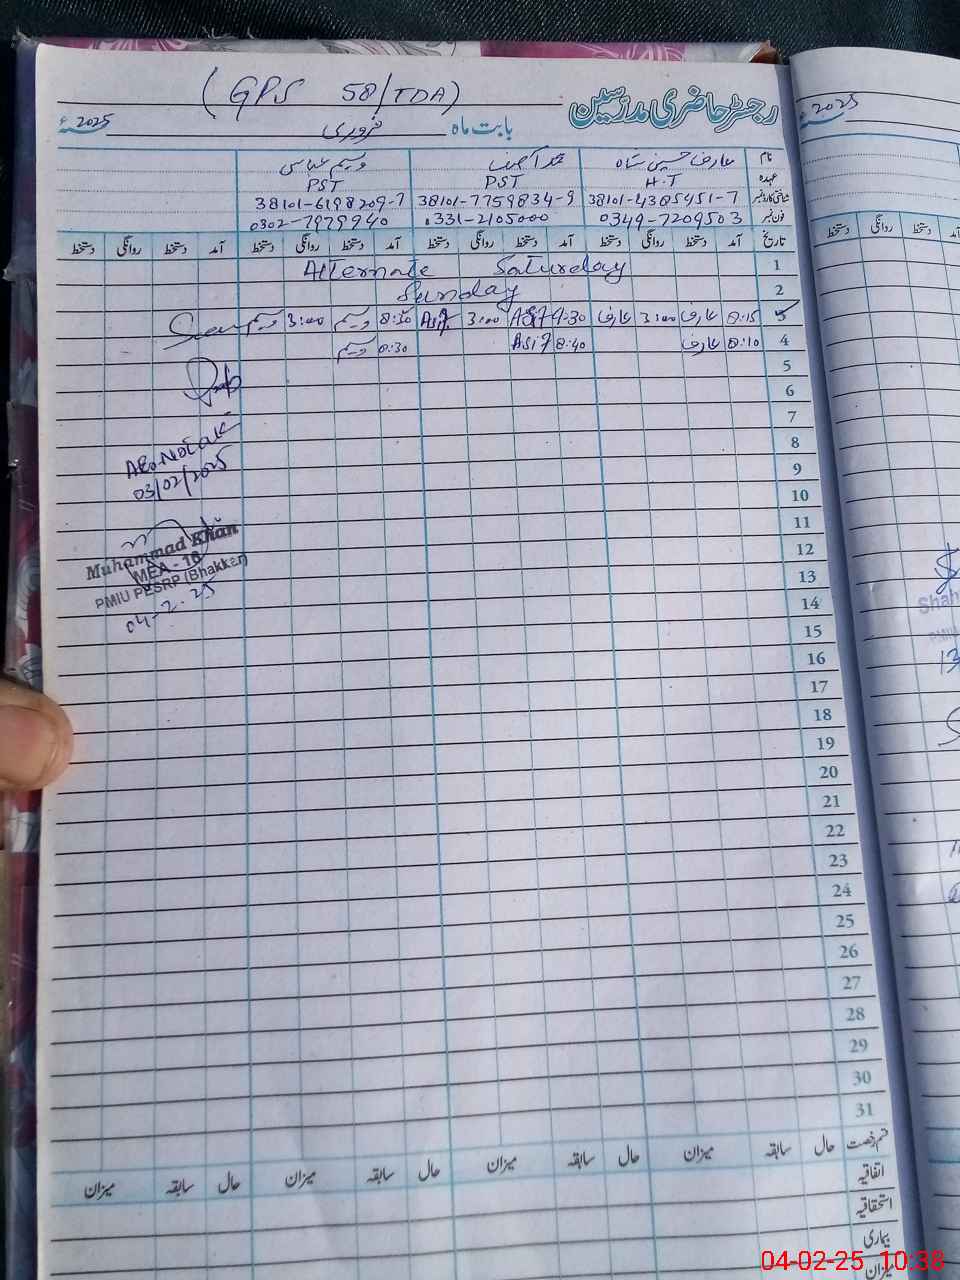 (GPS 58/TDA)
رجسٹر حاضری مدرسین
2025ء
بابت ماہ فروری
نام عارف حسین شاہ محمد آصف وسیم عباس
عہدہ H.T PST PST
شناختی کارڈ نمبر 38101-4385451-7 38101-7759834-9 38101-6198209-7
فون نمبر 0349-7209503 0331-2105000 0302-7979940
تاریخ آمد دستخط روانگی دستخط آمد دستخط روانگی دستخط آمد دستخط روانگی دستخط آمد دستخط روانگی دستخط
1 Alternate Saturday
2 Sunday
3 8:15 عارف 3:00 عارف Asif 3:00 Asif 8:30 وسیم 3:00 وسیم
4 8:10 عارف 8:40 Asif 8:30 وسیم
5
6
7
8
9
10
11
12
13
14
15
16
17
18
19
20
21
22
23
24
25
26
27
28
29
30
31
AEO Notak
03/02/2025
Muhammad Khan
MEA - 16
PMIU PESRP (Bhakkar)
04-2-25
قسم رخصت حال سابقہ میزان حال سابقہ میزان حال سابقہ میزان حال سابقہ میزان
اتفاقیہ
استحقاقیہ
بیماری
میزان
2025
دستخط روانگی دستخط
Shah
PMIU
13
04-02-25 10:38